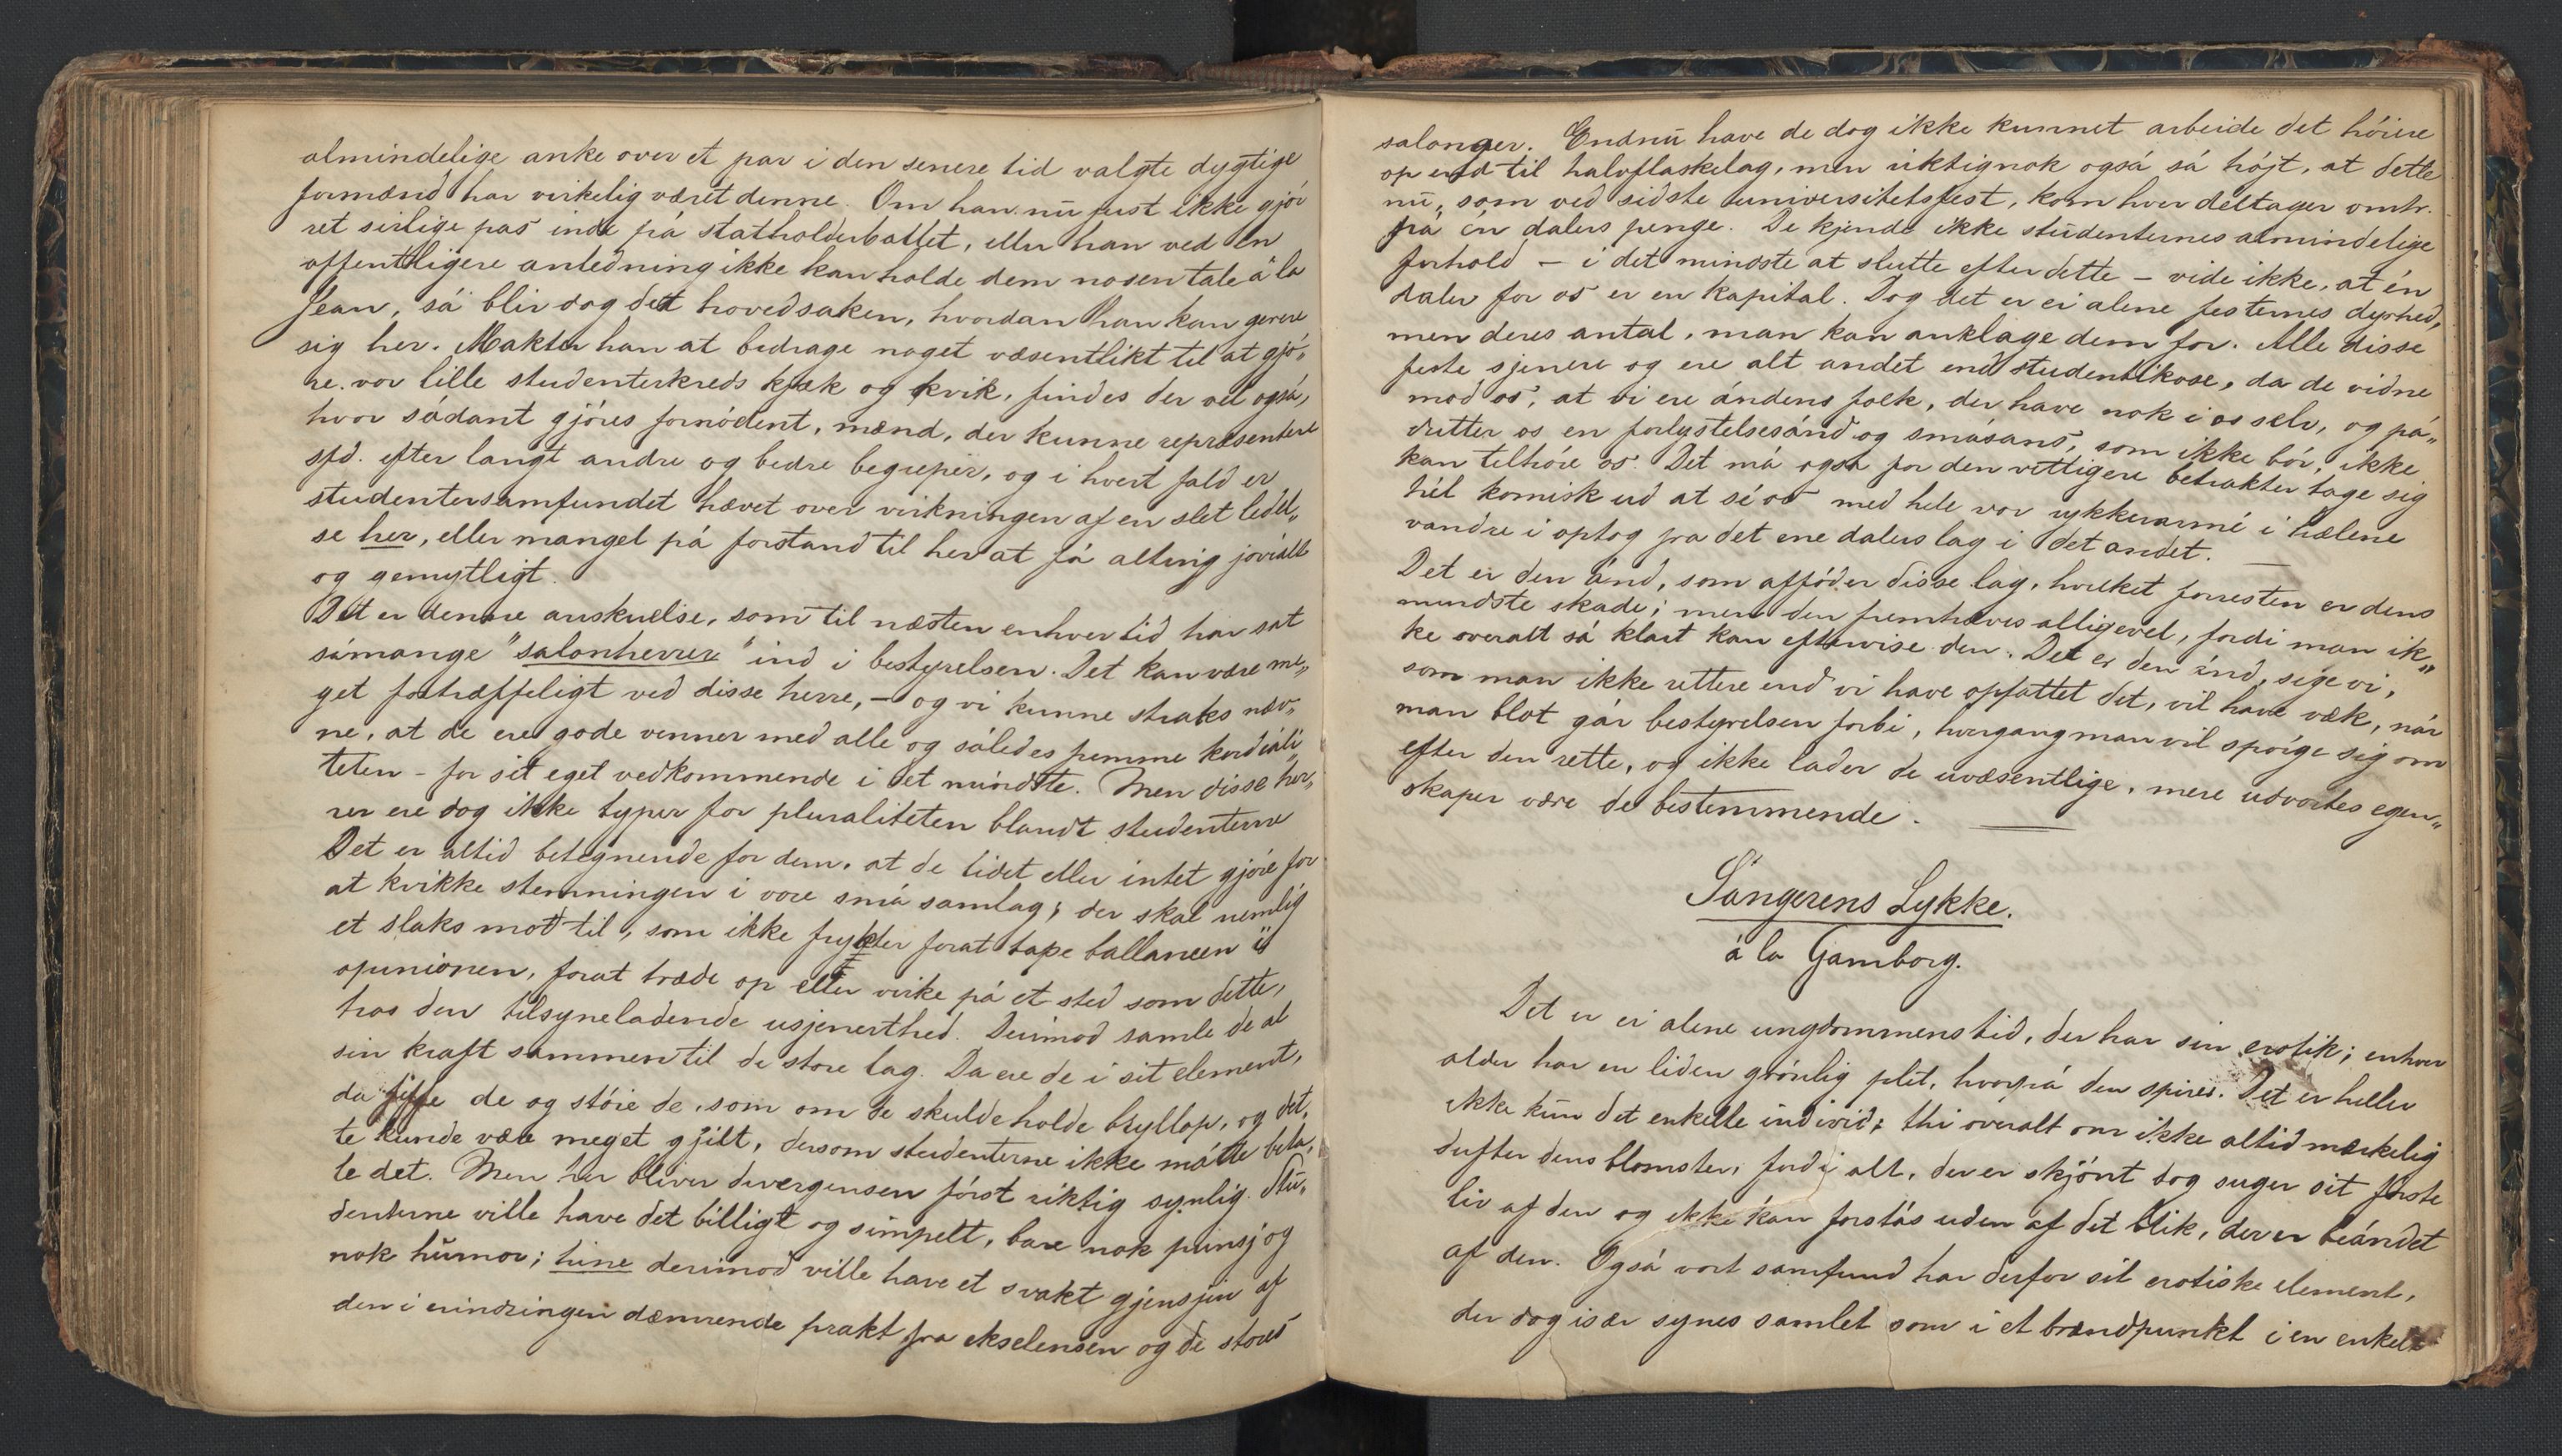 almindelige anke over et par i den senere tid valgte dygtige
formænd har virkelig været denne. Om han nu just ikke gjør
ret sirlige pas inde på statholderballet, eller han ved en
offentligere anledning ikke kan holde dem nosen tale à la
Jean, så blir dog det hovedsaken, hvordan han kan gerere
sig her. Makter han at bidrage noget væsentlikt til at gjö„
re vor lille studenterkreds kjæk og kvik, findes der vel også,
hvor sådant gjöres fornödent, mænd, der kunne repræsentere
sfd. efter langt andre og bedre begreper, og i hvert fald er
studentersamfundet hævet over virkningen af en slet ledel„
se her, eller mangel på forstand til her at få alting jovialt
og gemytligt.
Det er denne anskuelse, som til næsten enhver tid har sat
såmange "salonherrer" ind i bestyrelsen. Det kan være me„
get fortræffeligt ved disse herre, – og vi kunne straks næv„
ne, at de ere gode venner med alle og således fremme kordiali„
teten – for sit eget vedkommende i det mindste. Men disse her„
rer ere dog ikke typer for pluraliteten blandt studenterne
Det er altid betegnende for dem, at de lidet eller intet gjöre for
at kvikke stemningen i vore små samlag; der skal nemlig
et slaks mod til, som ikke frykter forat tape ballancen i
opinionen, forat træde op eller virke på et sted som dette,
hos den tilsyneladende usjenerthed. Derimod samle de al
sin kraft sammen til de store lag. Da ere de i sit element,
da fiffe de og stöie de, som om de skulde holde bryllop, og det„
te kunde være meget gjilt, dersom studenterne ikke måtte beta„
le det. Men her bliver divergensen först riktig synlig. Stu„
denterne ville have det billigt og simpelt, bare nok punsj og
nok humor; hine derimod ville have et svakt gjensjin af
den i erindringen dæmrende prakt fra ekselensen og de stores
salonger. Endnu have de dog ikke kunnet arbeide det höiere
op end til halvflaskelag, men riktignok også så höjt, at dette
nu, som ved sidste universitetsfest, kom hver deltager omtr.
på én dalers penge. De kjende ikke studenternes almindelige
forhold – i det mindste at slutte efter dette – vide ikke, at én
daler for os er en kapital. Dog det er ei alene festernes dyrhed,
men deres antal, man kan anklage dem for. Alle disse
feste sjenere og ere alt andet end studentikose, da de vidne
mod os, at vi ere åndens folk, der have nok i os selv, og på„
dutter os en forlystelsesånd og småsans, som ikke bör, ikke
kan tilhöre os. Det må også for den vittigere betrakter tage sig
hél komisk ud at sé os med hele vor rykkerarmé i hælene
vandre i optog fra det ene dalerslag i det andet. —
Det er den ånd, som afföder disse lag, hvilket forresten er dens
mindste skade; men den fremhæves alligevel, fordi man ik„
ke overalt så klart kan eftervise den. Det er den ånd, sige vi,
som man ikke rettere end vi have opfattet det, vil have væk, når
man blot går bestyrelsen forbi, hvergang man vil spörge sig om
efter den rette, og ikke lader de uvæsentlige, mere udvortes egen„
skaper være de bestemmende. —
Sångerens Lykke.
à la Gamborg.
Det er ei alene ungdommens tid, der har sin erotik; enhver
alder har en liden grönlig plet, hvorpå den spirer. Det er heller
ikke kun det enkelte individ; thi overalt om ikke altid mærkelig
dufter dens blomster, fordi alt, der er skjönt dog suger sit förste
liv af den og ikke kan forstås uden af det blik, der er beåndet
af den. Også vort samfund har derfor sit erotiske element,
der dog især synes samlet som i et brændpunkt i en enkelt